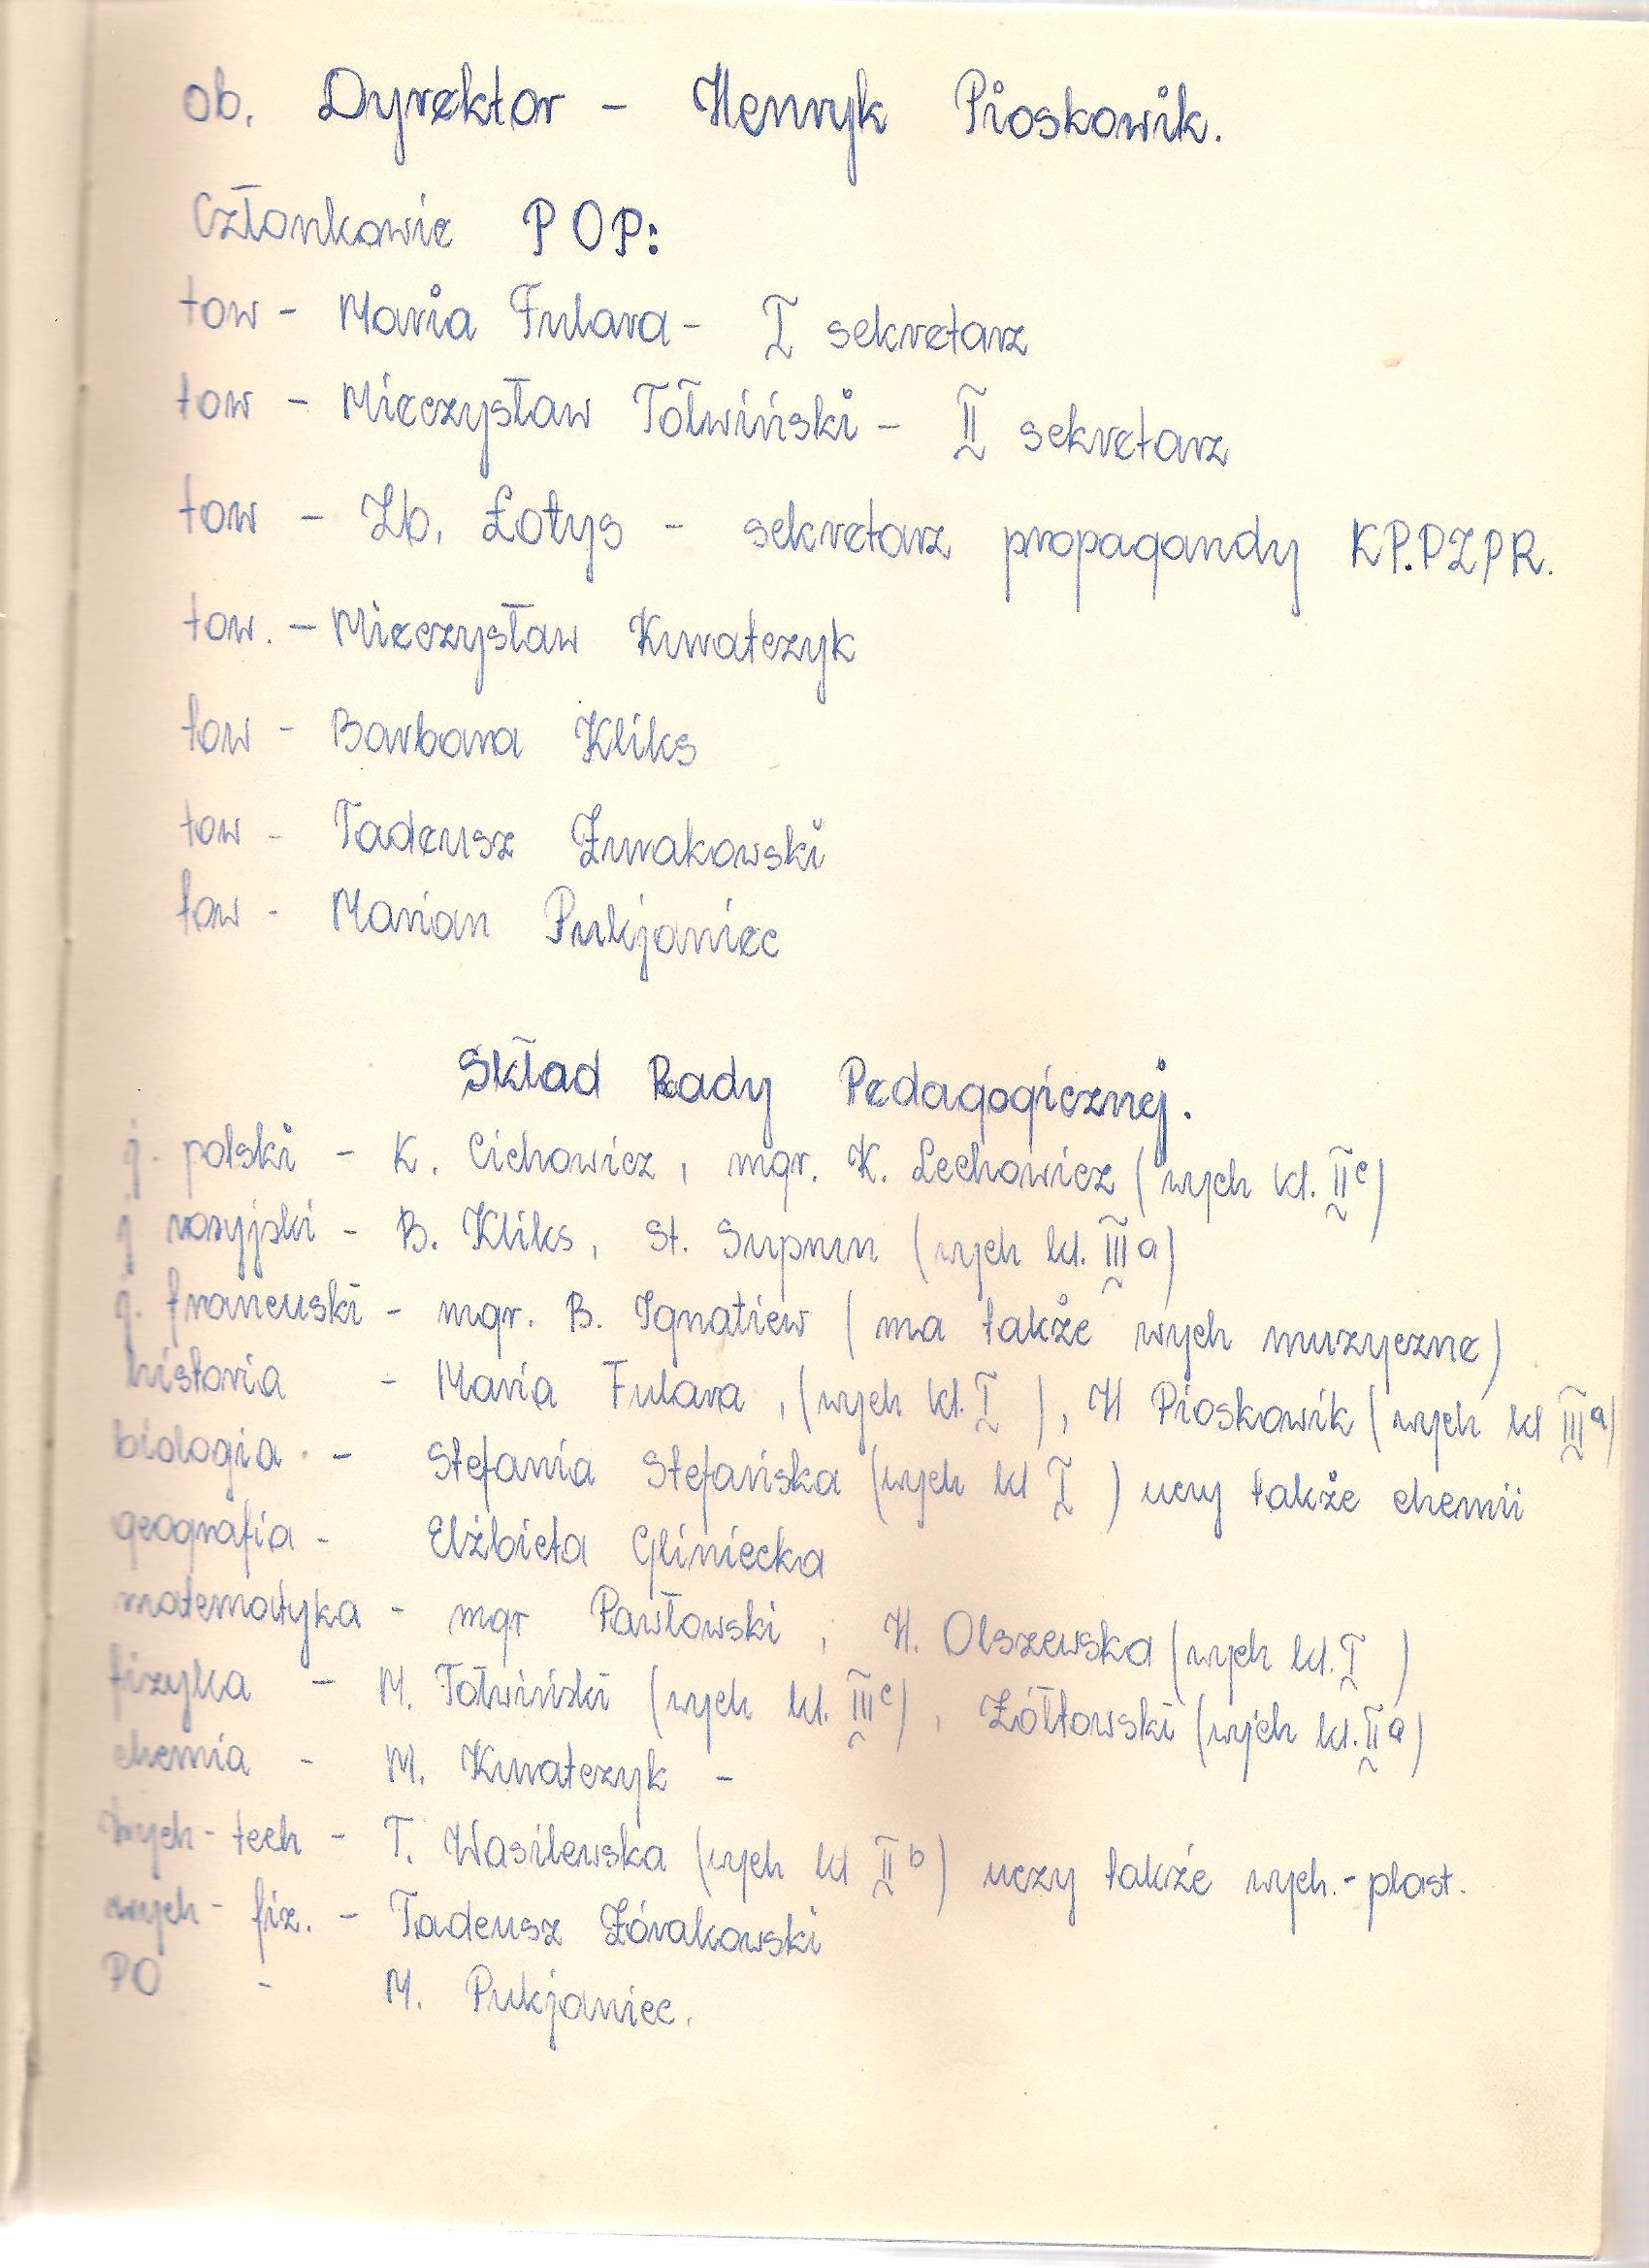 ob. Dyrektor - Henryk Pioskowik.
Członkowie POP:
tow - Maria Fulara - I sekretarz
tow - Mieczysław Tołwiński - II sekretarz
tow - Zb. Łotys - sekretarz propagandy KP.PZPR.
tow. - Mieczysław Kwatczyk
tow - Barbara Kliks
tow - Tadeusz Żurakowski
tow - Marian Pukjaniec
Skład Rady Pedagogicznej.
j. polski - K. Cichowicz, mgr. K. Lechowicz (wych kl. II c)
j rosyjski - B. Kliks, St. Suprun (wych kl. III a)
j. francuski - mgr. B. Ignatiew (ma także wych muzyczne)
historia - Maria Fulara, (wych kl. I ), H Pioskowik (wych kl III a)
biologia - Stefania Stefańska (wych kl I ) uczy także chemii
geografia - Elżbieta Gliniecka
matematyka - mgr Pawłowski, H. Olszewska (wych kl. I )
fizyka - M. Tołwiński (wych kl. III c), Żółtowski (wych kl. II a)
chemia - M. Kwatczyk -
wych - tech - T. Wasilewska (wych kl II b) uczy także wych. - plast.
wych - fiz. - Tadeusz Żórakowski
PO - M. Pukjaniec.